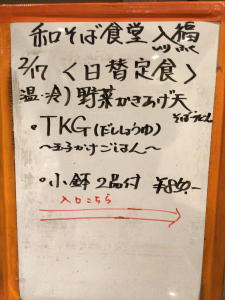 和そば食堂 入福
2/17 〈日替定食〉
温・冷) 野菜かきあげ天
そば・うどん
・TKG(だしじょうゆ)
〜玉子かけごはん〜
・小鉢2品付 ¥890.-
入口こちら